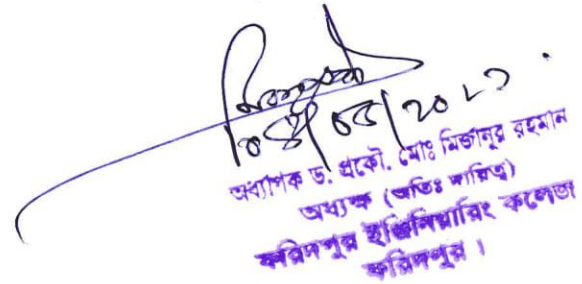 অধ্যাপক ড. প্রকৌ. মোঃ মিজানুর রহমান
অধ্যক্ষ (অতিঃ দায়িত্ব)
ফরিদপুর ইঞ্জিনিয়ারিং কলেজ
ফরিদপুর।